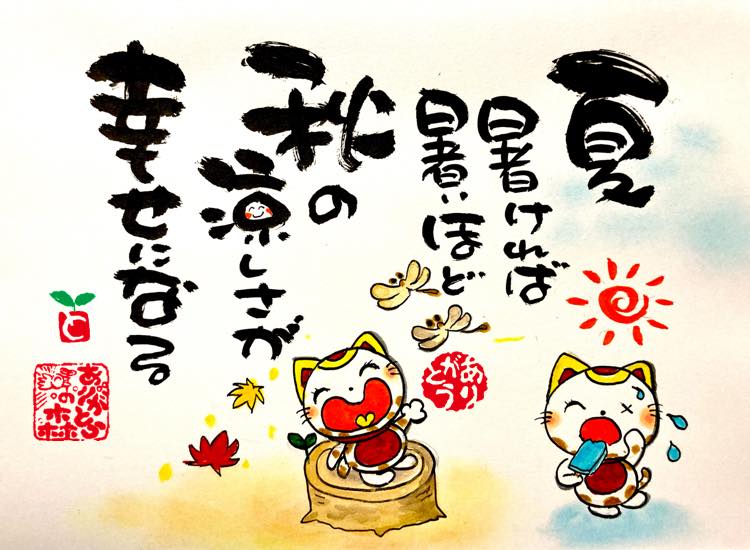 夏
暑ければ
暑いほど
秋の
涼しさが
幸せになる。
ありがとう
ありがとうの森